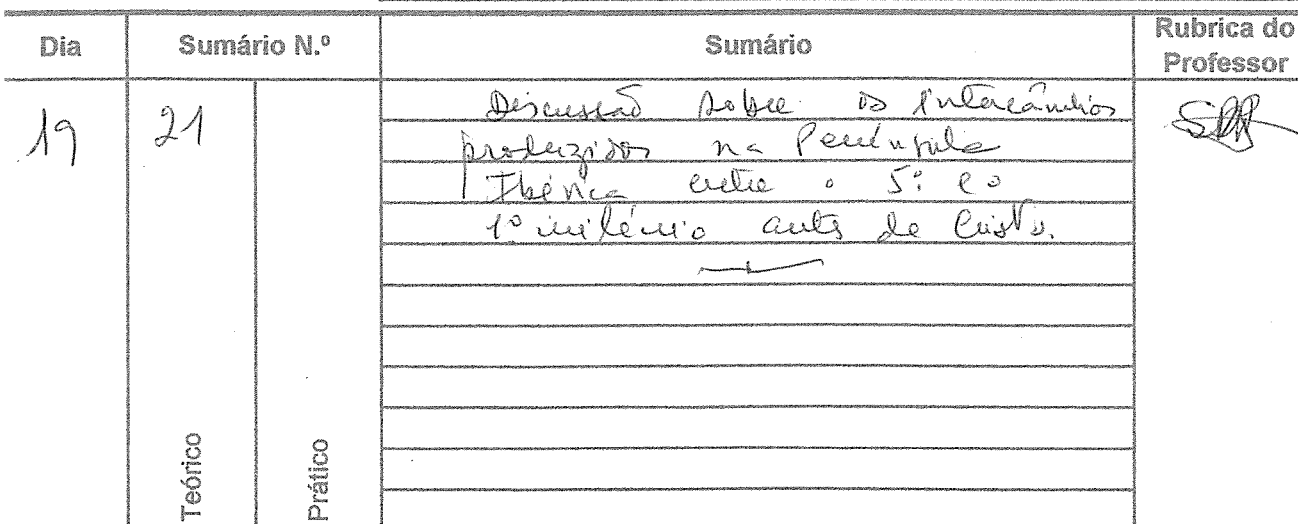 Dia Sumário N.º Sumário Rubrica do Professor
19 21 Discussão sobre os intercâmbios
produzidos na Península
Ibérica entre o 5º e o
1º milénio antes de Cristo.
Teórico Prático